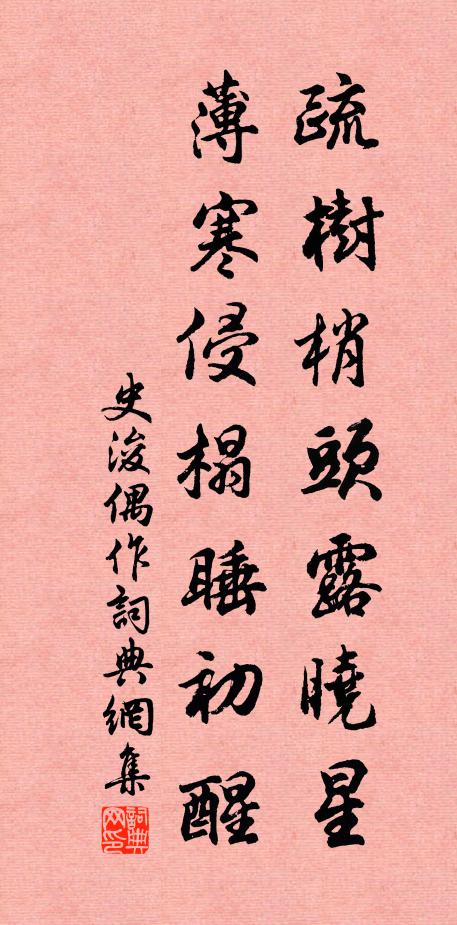 疏樹梢頭露曉星
薄寒侵榻睡初醒
史浚偶作詞典網集
詞典网印